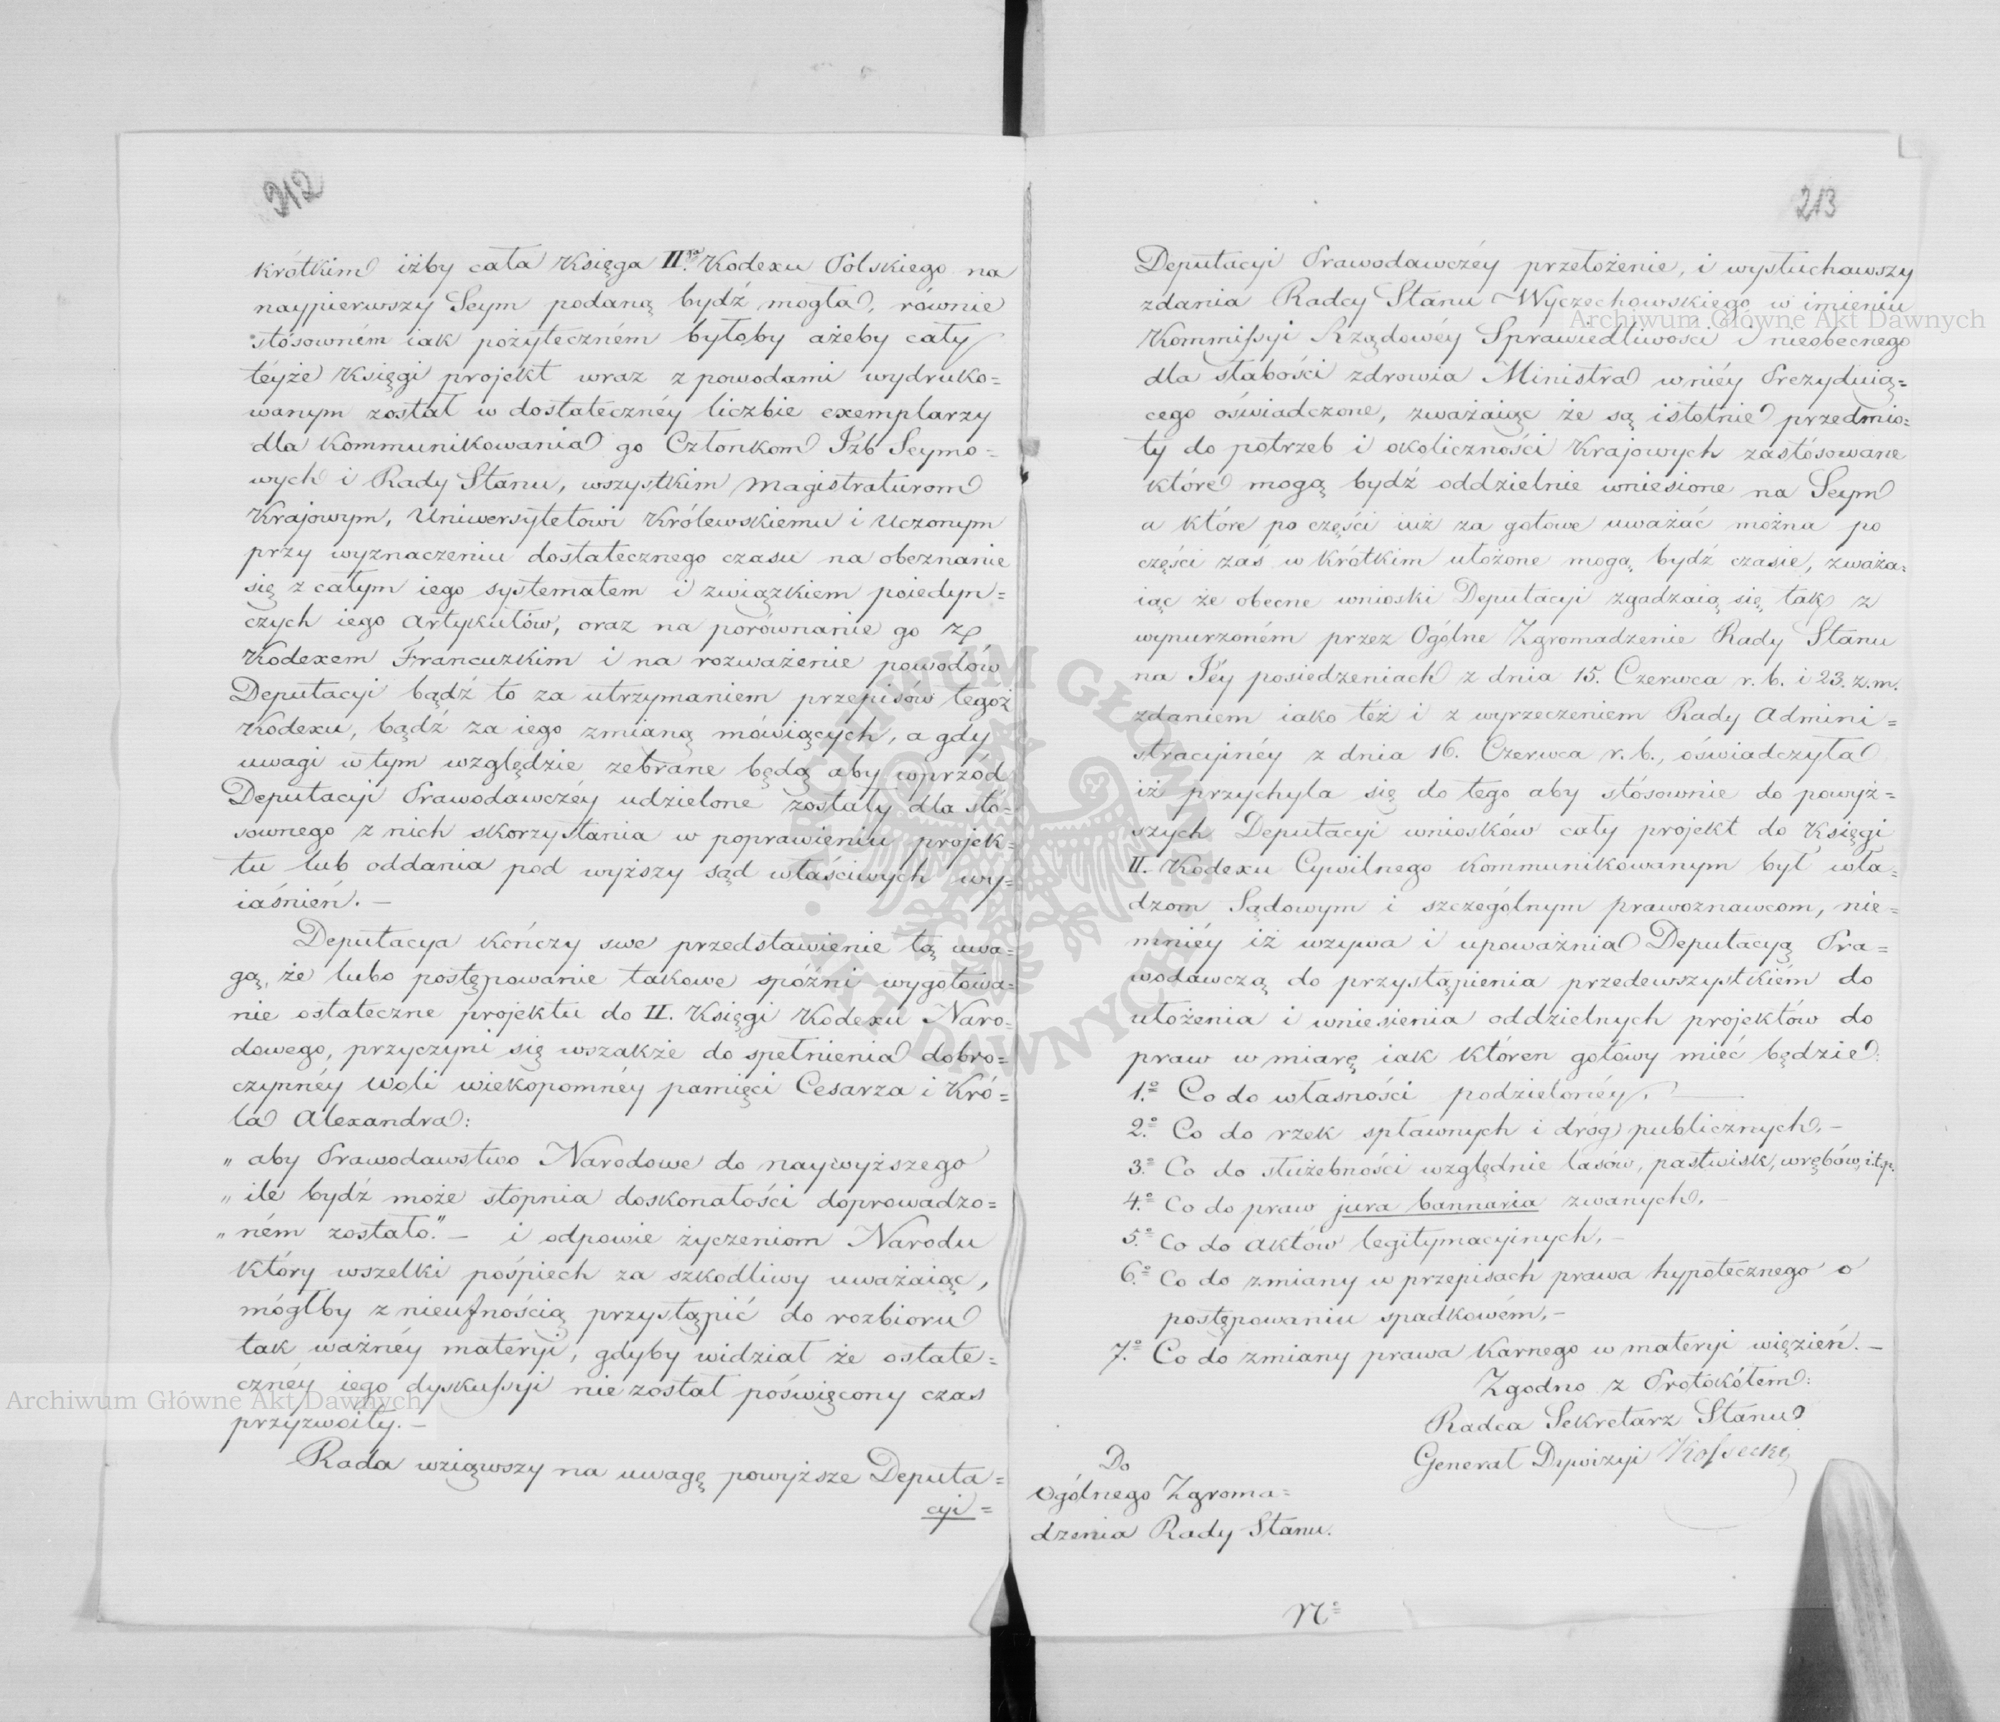 212
krótkim iżby cała Księga II.ga Kodexu Polskiego na
naypierwszy Seym podaną bydź mogła, równie
stósowném iak pożyteczném byłoby ażeby cały
téyże Księgi projekt wraz z powodami wydruko=
wanym został w dostatecznéy liczbie exemplarzy
dla kommunikowania go Członkom Izb Seymo=
wych i Rady Stanu, wszystkim Magistraturom
Krajowym, Uniwersytetowi Królewskiemu i Uczonym
przy wyznaczeniu dostatecznego czasu na obeznanie
się z całym iego systematem i związkiem poiedyn=
czych iego Artykułów, oraz na porównanie go z
Kodexem Francuzkim i na rozważenie powodów
Deputacyi bądź to za utrzymaniem przepisów tegoż
Kodexu, bądź za iego zmianą mówiących, a gdy
uwagi w tym względzie zebrane będą aby wprzód
Deputacyi Prawodawczéy udzielone zostały dla stó=
sownego z nich skorzystania w poprawieniu projek=
tu lub oddania pod wyższy sąd właściwych wy=
iaśnień. —
Deputacya kończy swe przedstawienie tą uwa=
gą, że lubo postępowanie takowe spóźni wygotowa=
nie ostateczne projektu do II. Księgi Kodexu Naro=
dowego, przyczyni się wszakże do spełnienia dobro=
czynnéy Woli wiekopomnéy pamięci Cesarza i Kró=
la Alexandra:
„ aby Prawodawstwo Narodowe do naywyższego
„ ile bydź może stopnia doskonałości doprowadzo=
„ ném zostało." — i odpowie życzeniom Narodu
który wszelki pośpiech za szkodliwy uważaiąc,
mógłby z nieufnością przystąpić do rozbioru
tak ważnéy materyi, gdyby widział że ostate=
cznéy iego dyskussyi nie został poświęcony czas
przyzwoity. —
Rada wziąwszy na uwagę powyższe Deputa=
cyi =
213
Deputacyi Prawodawczéy przełożenie, i wysłuchawszy
zdania Radcy Stanu Wyczechowskiego w imieniu
Kommissyi Rządowéy Sprawiedliwości i nieobecnego
dla słabości zdrowia Ministra w niéy Prezyduią=
cego oświadczone, zważaiąc że są istotnie przedmio=
ty do potrzeb i okoliczności Krajowych zastósowane
które mogą bydź oddzielnie wniesione na Seym
a które po części iuż za gotowe uważać można po
części zaś w krótkim ułożone mogą bydź czasie, zważa=
iąc że obecne wnioski Deputacyi zgadzaią się tak z
wynurzoném przez Ogólne Zgromadzenie Rady Stanu
na Iéy posiedzeniach z dnia 15. Czerwca r. b. i 23. z. m.
zdaniem iako też i z wyrzeczeniem Rady Admini=
stracyinéy z dnia 16. Czerwca r. b., oświadczyła
iż przychyla się do tego aby stósownie do powyż=
szych Deputacyi wniosków cały projekt do Księgi
II. Kodexu Cywilnego kommunikowanym był wła=
dzom Sądowym i szczególnym prawoznawcom, nie=
mniéy iż wzywa i upoważnia Deputacyą Pra=
wodawczą do przystąpienia przedewszystkiém do
ułożenia i wniesienia oddzielnych projektów do
praw w miarę iak któren gotowy mieć będzie:
1.º Co do własności podzielonéy. —
2.º Co do rzek spławnych i dróg publicznych. —
3.º Co do służebności względnie lasów, pastwisk, wrębów, i.t.p.
4.º Co do praw jura bannaria zwanych. —
5.º Co do Aktów legitymacyinych. —
6.º Co do zmiany w przepisach prawa hypotecznego o
postępowaniu spadkowém. —
7.º Co do zmiany prawa Karnego w materyi więzień. —
Zgodno z Protokółem:
Radca Sekretarz Stanu
Generał Dywizyi Kossecki
Do
Ogólnego Zgroma=
dzenia Rady Stanu.
Nº
Archiwum Główne Akt Dawnych
Archiwum Główne Akt Dawnych
ARCHIWUM GŁÓWNE AKT DAWNYCH